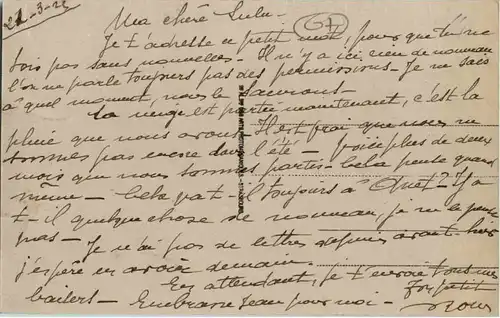 22-3-22
Ma chère Lulu.
Je t'adresse ce petit mot, pour que tu ne
sois pas sans nouvelles - Il n'y a ici rien de nouveau
l'on ne parle toujours pas des permissions - Je ne sais
à quel moment, nous les aurons -
La neige est partie maintenant, c'est la
pluie que nous avons - Il est vrai que nous ne
sommes pas encore dans l'été - Voici plus de deux
mois que nous sommes partis - Cela passe quand
même - Cela va-t-il toujours à ? Y a
t-il quelque chose de nouveau, je ne le pense
pas - Je n'ai pas de lettres depuis avant-hier
j'espère en avoir demain.
En attendant, je t'envoie tous mes
baisers - Embrasse Jean pour moi - Ton petit